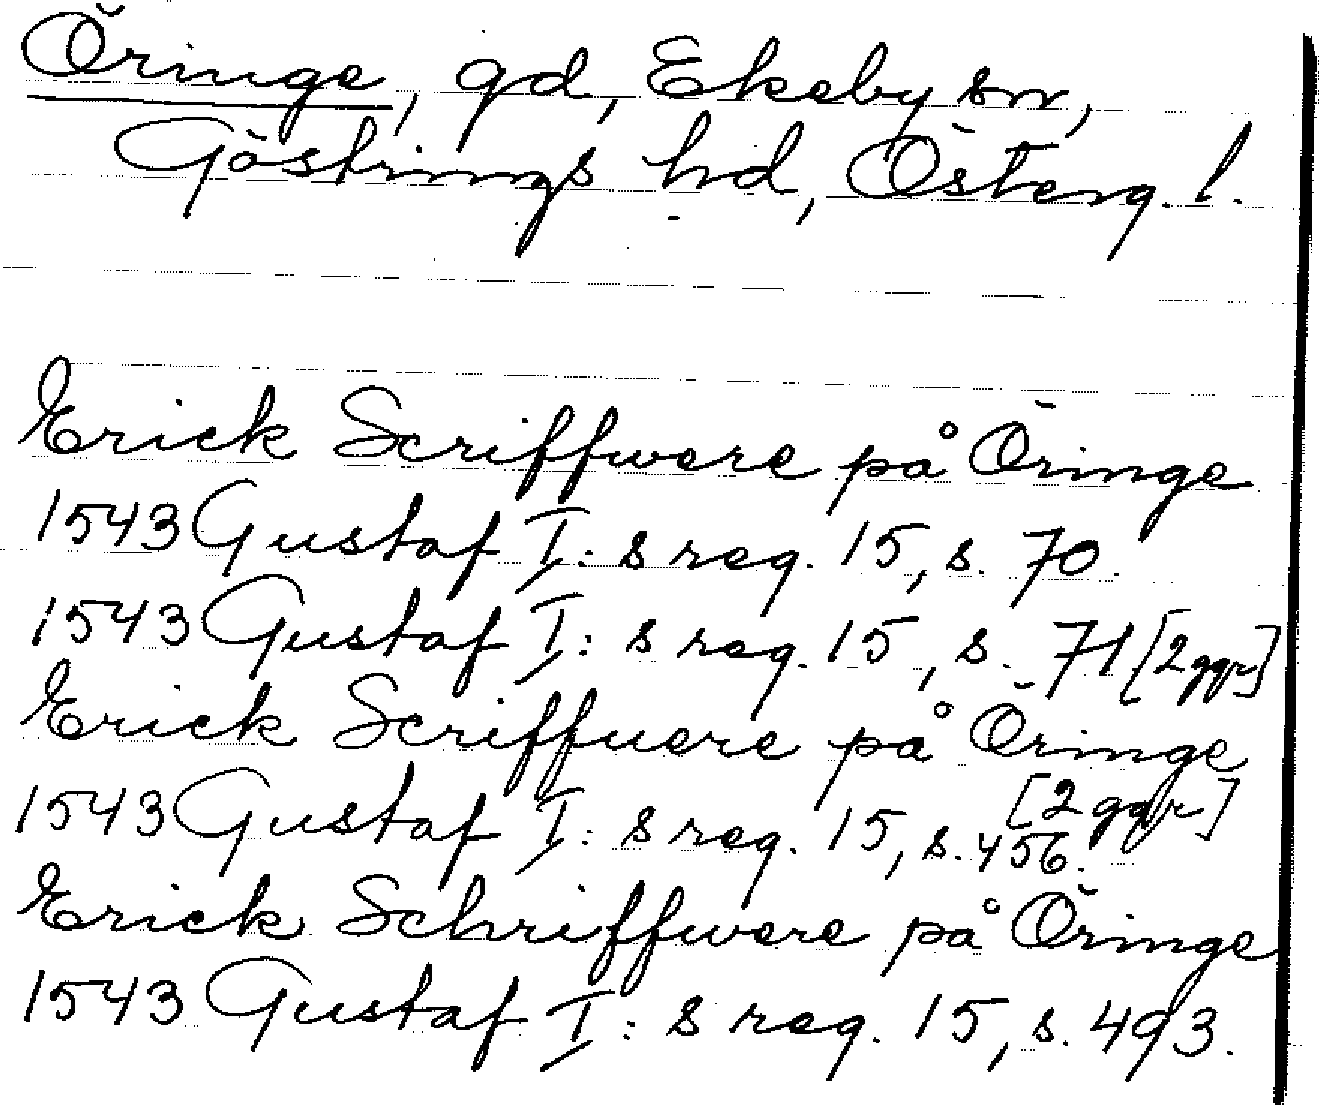 Öringe, gd, Ekeby sn,
Göstrings hd, Österg. l.
Erick Scriffwere på Öringe
1543 Gustaf I: s reg. 15, s. 70.
1543 Gustaf I: s reg. 15, s. 71 [2 ggr]
Erick Scriffuere på Öringe
[2 ggr]
1543 Gustaf I: s reg. 15, s. 456.
Erick Schriffwere på Öringe
1543 Gustaf I: s reg. 15, s. 493.